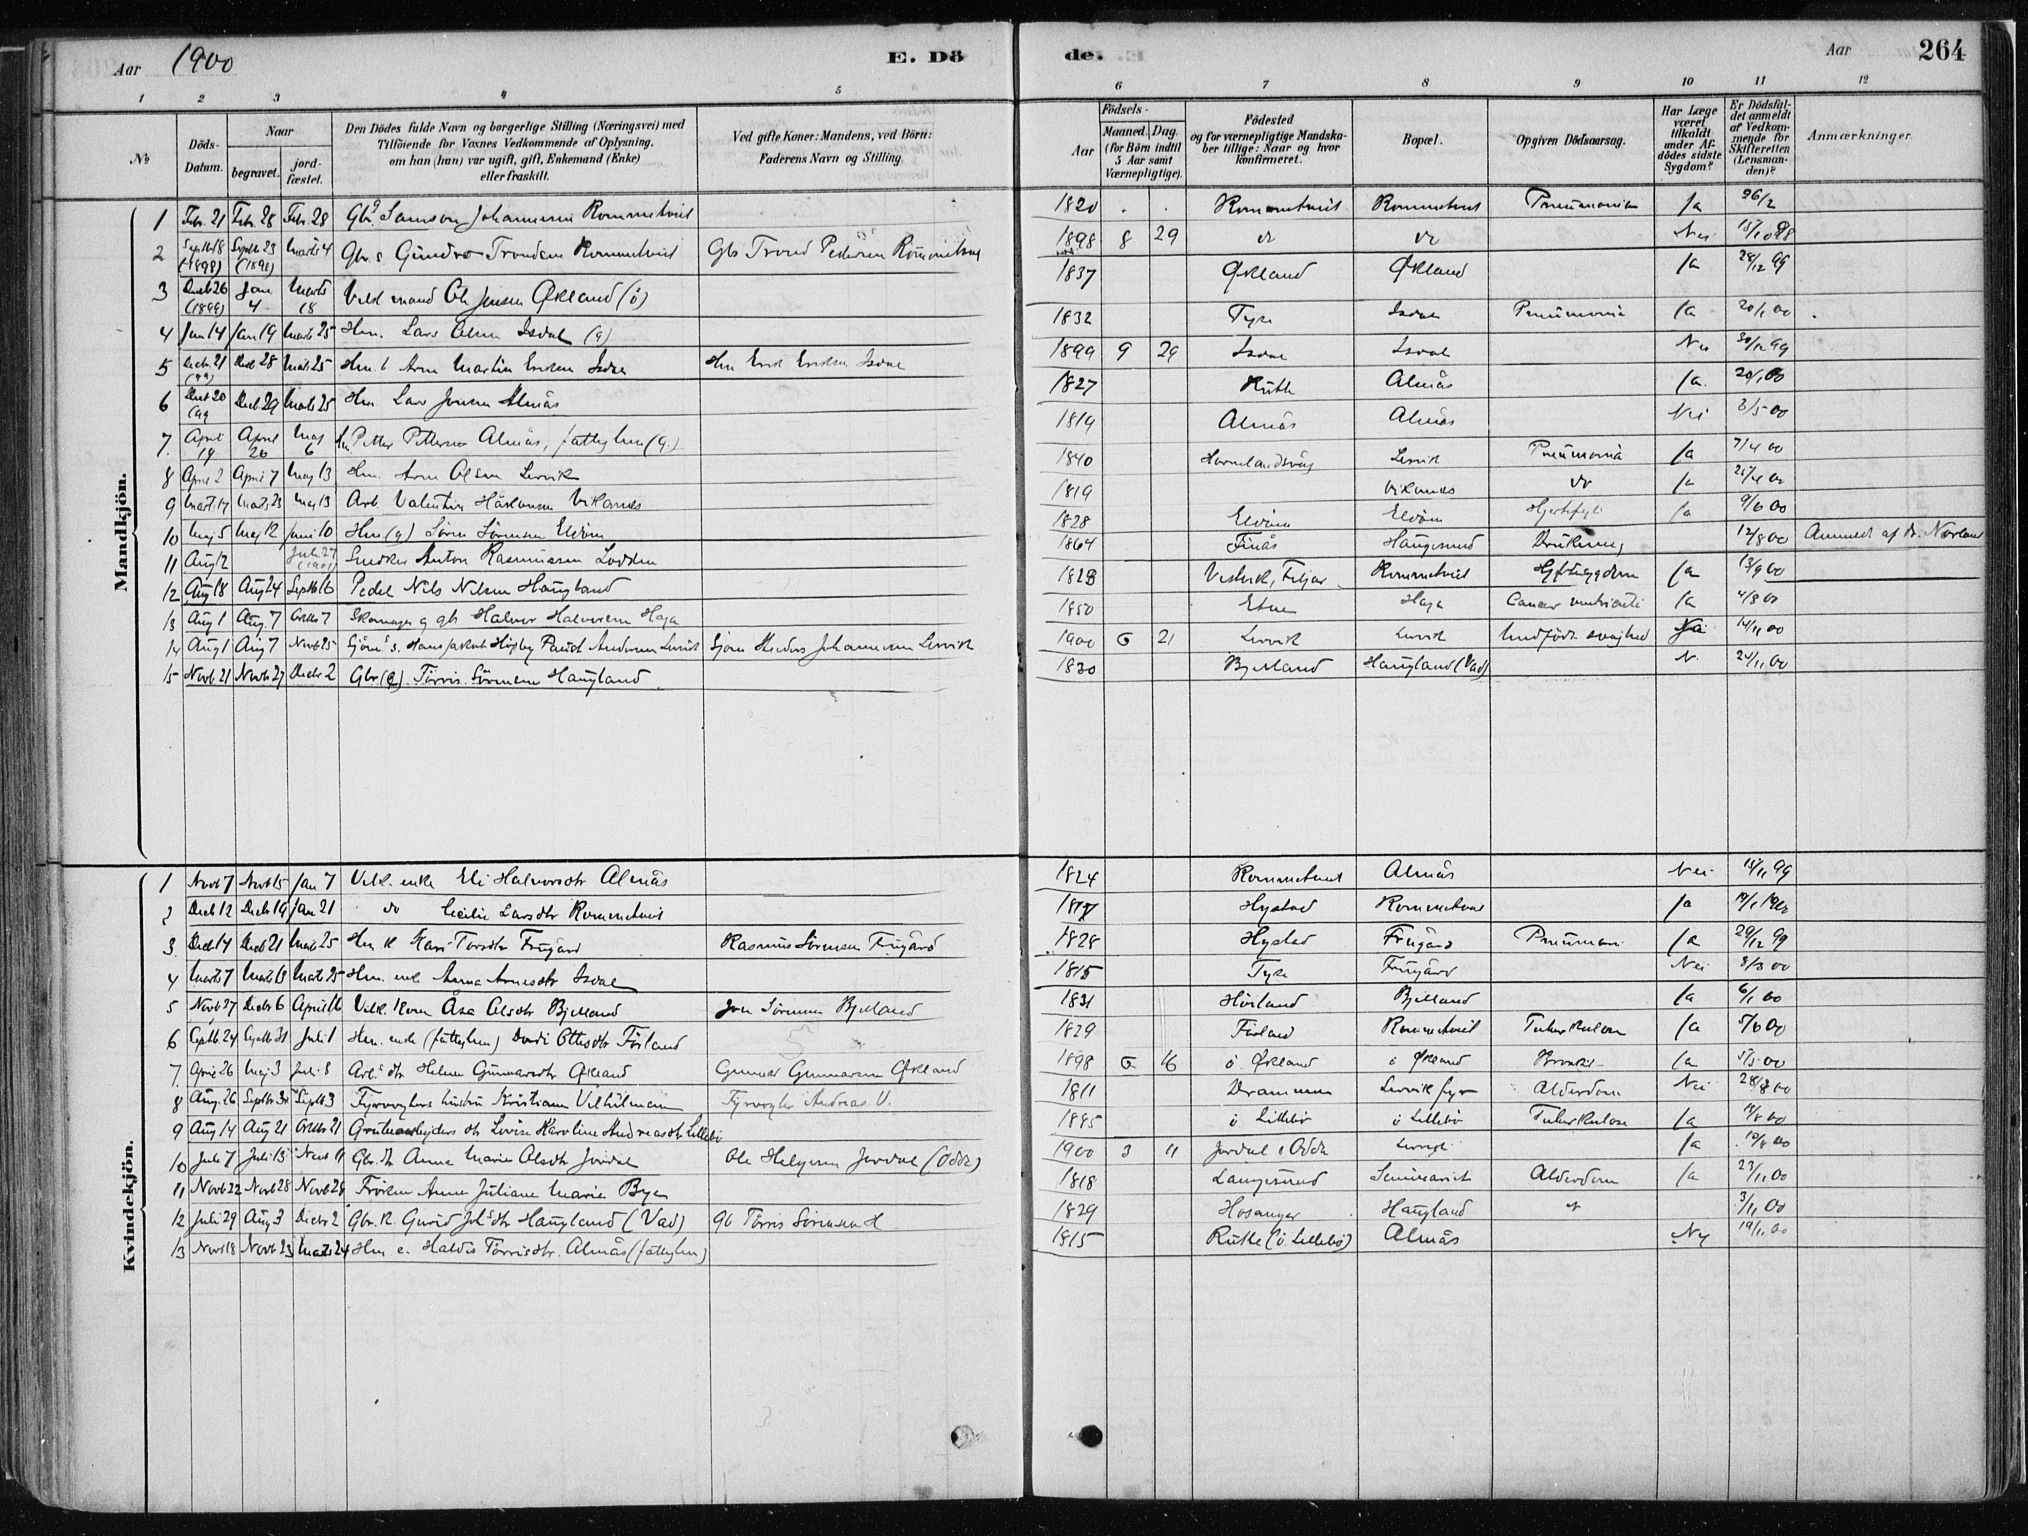 Aar 1900 E. Dö de. Aar 264
1 2 3 4 5 6 7 8 9 10 11 12
No
Döds-Datum.
Naar
begravet.
jord-fæstet.
Den Dödes fulde Navn og borgerlige Stilling (Næringsvei) med
Tilföiende for Voxnes Vedkommende af Oplysning,
om han (hun) var ugift, gift, Enkemand (Enke)
eller fraskilt.
Ved gifte Koner: Mandens, ved Börn:
Faderens Navn og Stilling.
Födsels-
Aar
Maaned. Dag.
(for Börn indtil
5 Aar samt
Værnepligtige).
Födested
og for værnepligtige Mandska-
ber tillige: Naar og hvor
konfirmeret.
Bopæl.
Opgiven Dödsaarsag.
Har Læge
været
tilkaldt
under Af-
dödes sidste
Sygdom?
Er Dödsfal-
det anmeldt
af Vedkom-
mende for
Skifteretten
(Lensman-
den)?
Anmærkninger.
Mandkjön.
1 Febr. 21 Febr. 28 Febr. 28 Gbr Samson Johannesen Rommetveit 1820 Rommetveit Rommetveit Pneumonia Ja 26/2
2 Septb 18 (1898) Septb 23 (1898) Marts 4 Gbr. s. Gundro Trondsen Rommetveit Gb Trond Pedersen Rommetveit 1898 8 29 do do Nei 15/10 98
3 Decb 26 (1899) Jan 4 Marts 18 Velk mand Ole Jensen Økland (ö) 1837 Økland Økland Ja 28/12 99
4 Jan 14 Jan 19 Marts 25 Hm. Lars Olsen Isdal (g) 1832 Tyse Isdal Pneumonia Ja 20/1 00
5 Decb 21 (99) Decb 28 Marts 25 Hm. b Arne Martin Eriksen Isdal Hm Erik Eriksen Isdal 1899 9 29 Isdal Isdal Nei 30/12 99
6 Decb 20 (99 Decb 29 Marts 25 Hm. Lars Jensen Almås 1827 Rutle Almås Ja. 20/1 00
7. April 19 April 26 Maj 6 Petter Pettersen Almås, fattighm (g.) 1819 Almås Almås Nei 3/5 00
8 April 2 April 7 Maj 13 Hm. Arne Olsen Lervik 1840 Hornelandsvåg Lervik Pneumonia Ja 7/4 00
9 Marts 17 Marts 23 Maj 13 Arb Valentin Håkonsen Vikanes 1819 Vikanes do Ja 25/4 00
10 Maj 5 Maj 12 Juni 10 Hm (g) Sören Sörensen Eldöen 1828 Eldöen Eldöen Hjertefeil Ja 9/6 00
11 Aug 2 Juli 27 (1901) Snedker Anton Rasmussen Lodden 1864 Finås Haugesund Drukning 12/8 00 Anmeldt af dr. Norland
12 Aug 18 Aug 24 Septb 16 Pedel Nils Nilsen Haugland 1823 Vestvik, Fitjar Rommetveit Ja 13/9 00
13 Aug 1 Aug. 7 Octb 7 Skomager g gb Halvor Halvorsen Haga 1850 Etne Haga Cancer ventriculi Ja 4/8 00
14 Aug 1 Aug 7 Novb 25 Sjöm s. Hans Jakob Andersen Lervik Sjöm Anders Johannesen Lervik 1900 6 21 Lervik Lervik Medfödt svaghed 14/11 00
15 Novb 21 Novb 27 Decb 2 Gbr (g) Törris Sörensen Haugland 1830 Bjelland Haugland (Vad) N. 24/11 00
Kvindekjön.
1 Novb 7 Novb 15 Jan 7 Velk. enke Eli Halvorsdtr Almås 1824 Rommetveit Almås Nei 15/11 99
2 Decb 12 Decb 19 Jan 21 do Cecilie Larsdtr Rommetveit 1817 Hystad Rommetveit Ja 14/1 1900
3. Decb 14 Decb 21 Marts 25 Hm. k Kari Torsdtr Frugård Rasmus Sörensen Frugård 1828 Hystad Frugård Pneumoni Ja 29/12 99
4 Marts 7 Marts 13 Marts 25 Hm. enk Anna Arnesdtr Isdal 1815 Tyse Frugård Nei 8/3 00
5 Novb 27 Decb 6 April 16 Velk. Kone Åsa Olsdtr Bjelland Jon Sörensen Bjelland 1831 Hovland Bjelland Ja 6/1 00
6 Septb. 24 Septb 31 Juli 1 Hm. enke (fattighm) Dordi Ottesdtr Förland 1829 Förland Rommetveit Tuberkulose Ja 5/6 00
7. April 26 Maj 3 Juli 8 Arb. dtr Helene Gunnarsdtr Økland Gunnar Gunnarsen Økland 1898 6 16 ö Økland ö Økland Bronkit Ja 5/5 00
8 Aug. 26 Septb 3 Septb 3 Fyrvogters hustru Kristiane Vilhelmsen Fyrvogter Andreas V. 1811 Drammen Lervik fyr Alderdom Nei 28/8 00
9 Aug 14 Aug 21 Octb 21 Grubearbejders dtr Lovise Karoline Andreasdtr Lillebö 1885 ö Lillebö ö Lillebö Tuberkulose Ja 14/8 00
10 Juli 7 Juli 13 Novb 11 Gbr. dtr Anna Marie Olsdtr Jordal Ole Helgesen Jordal (Odda) 1900 3 11 Jordal i Odda Lervik Ja 10/8 00
11 Novb 22 Novb 28 Novb 28 Frøken Anna Juliane Marie Bye 1818 Langesund Seminariet Alderdom Ja 23/11 00
12 Juli 29 Aug 3 Decb 2 Gbr. k. Gurid Johsdtr Haugland (Vad) Gb Törris Sörensen H 1829 Hosanger Haugland 3/11 00
13 Novb 18 Novb 23 Marts 24 Hm e. Haldis Törrisdtr. Almås (fattighm) 1815 Rutle (ö. Lillebö) Almås Nej 19/11 00